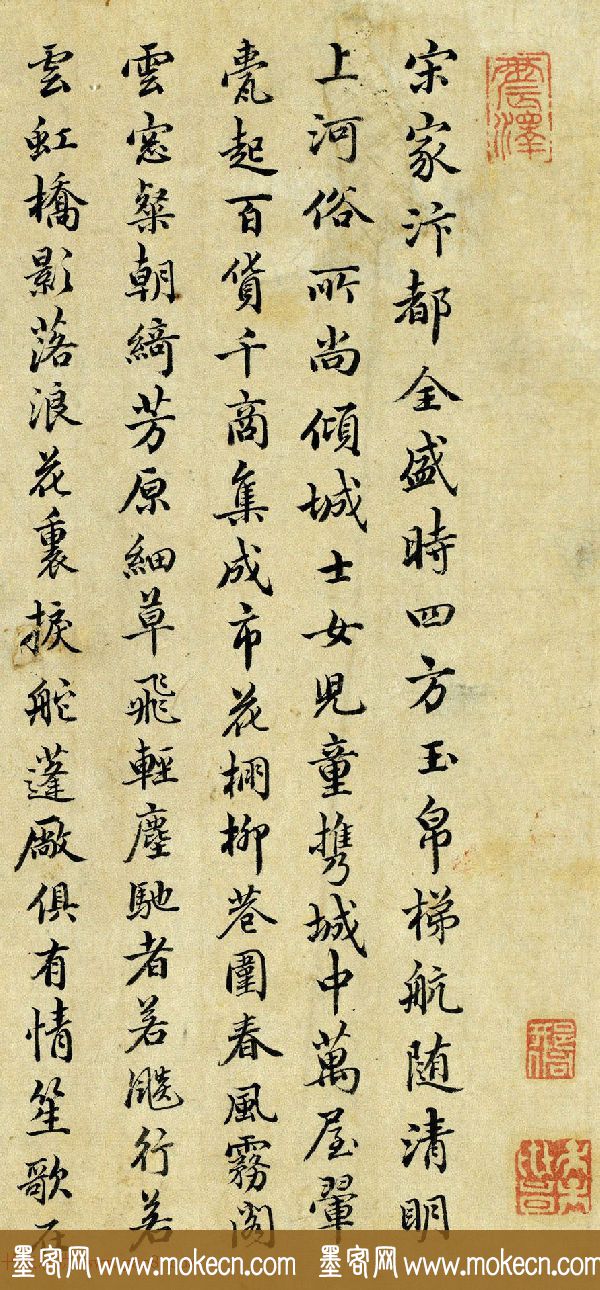 震澤
宋家汴都全盛時四方玉帛梯航随清明
上河俗所尚傾城士女児童携城中萬屋翬
甍起百貨千商集成市花棚柳巷圍春風霧閣
雲窓粲朝綺芳原細草飛輕塵馳者若飈行若
雲虹橋影落浪花裏捩舵蓬廠俱有情笙歌在
墨客网 www.mokecn.com 墨客网 www.mokecn.com